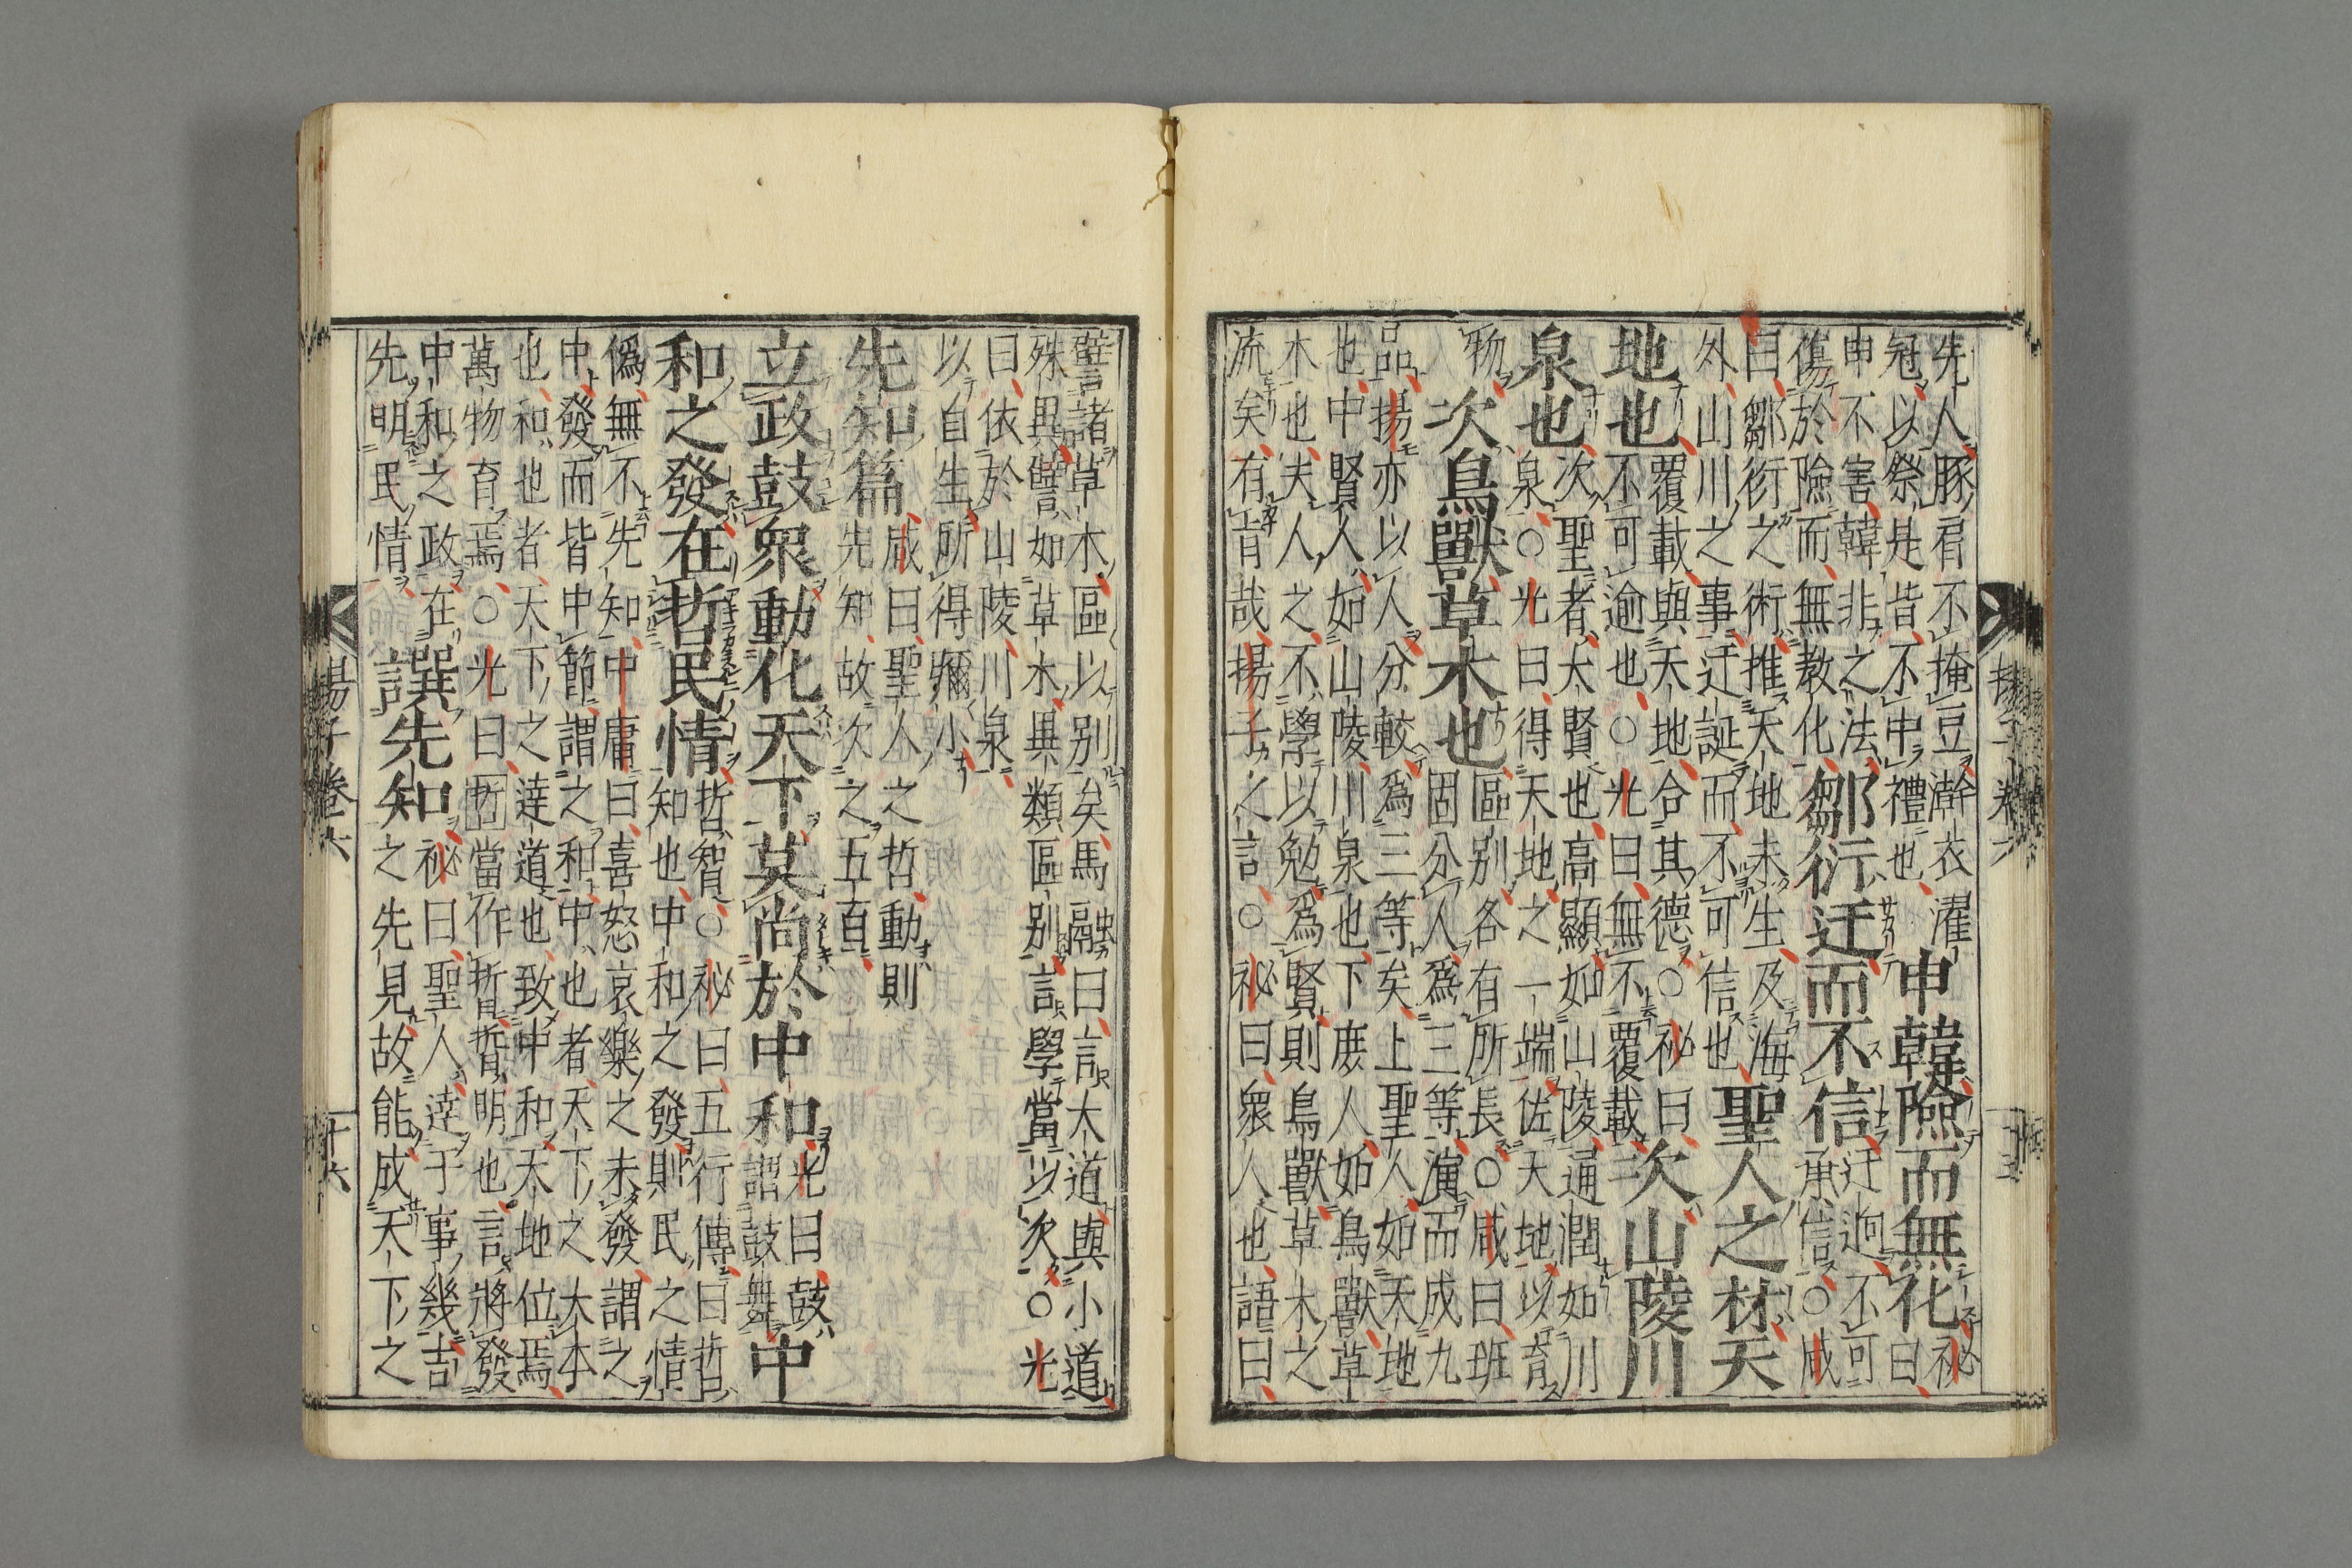 先人豚肩不掩豆澣衣濯
冠以祭是皆不中禮也
申韓險而無化
祕
曰
申不害韓非之法
傷於險而無教化
鄒衍迂而不信
迂迥不可
承信○咸
曰鄒衍之術推天地未生及海
外山川之事迂誕而不可信也
聖人之材天
地也
覆載與天地合其德○祕曰
不可逾也○光曰無不覆載
次山陵川
泉也
次聖者大賢也高顯如山陵通潤如川
泉○光曰得天地之一端佐天地以育
物
次鳥獸草木也
區別各有所長○咸曰班
固分人爲三等演而成九
品揚亦以人分較爲三等矣上聖人如天地
也中賢人如山陵川泉也下庶人如鳥獸草
木也夫人之不學以勉爲賢則鳥獸草木之
流矣有旨哉揚子之言○祕曰衆人也語曰
揚子卷六
譬諸草木區以別矣馬融曰言大道與小道
殊異譬如草木異類區別言學當以次○光
曰依於山陵川泉
以自生所得彌小
先知篇
咸曰聖人之哲動則
先知故次之五百
立政鼓衆動化天下莫尚於中和
光曰鼓
謂鼓舞
中
和之發在哲民情
哲智○祕曰五行傳曰哲
知也中和之發則民之情
僞無不先知中庸曰喜怒哀樂之未發謂之
中發而皆中節謂之和中也者天下之大本
也和也者天下之達道也致中和天地位焉
萬物育焉○光曰哲當作晢晢明也言將發
中和之政在
先明民情
譔先知
祕曰聖人達于事幾吉
之先見故能成天下之
揚子卷六
十六